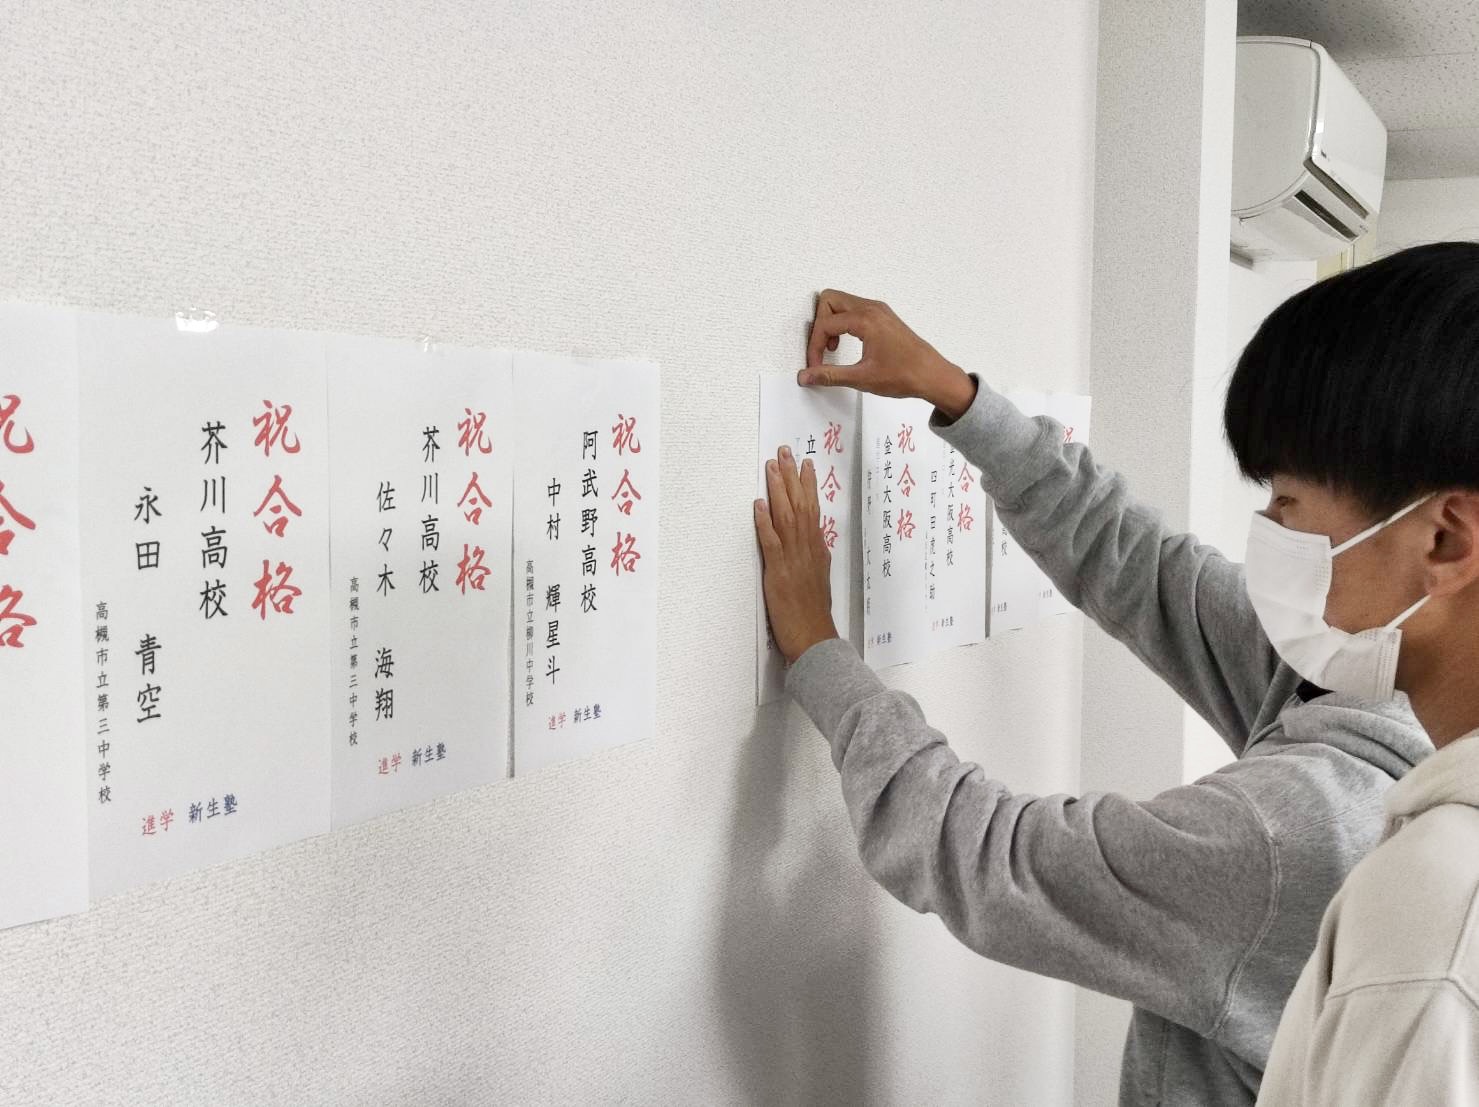 祝合格
祝合格
芥川高校
永田 青空
高槻市立第三中学校
進学 新生塾
祝合格
芥川高校
佐々木 海翔
高槻市立第三中学校
進学 新生塾
祝合格
阿武野高校
中村 輝星斗
高槻市立柳川中学校
進学 新生塾
祝合格
立
祝合格
金光大阪高校
進学 新生塾
合格
金光大阪高校
四町田虎之助
進学 新生塾
祝
高校
新生塾
新生塾